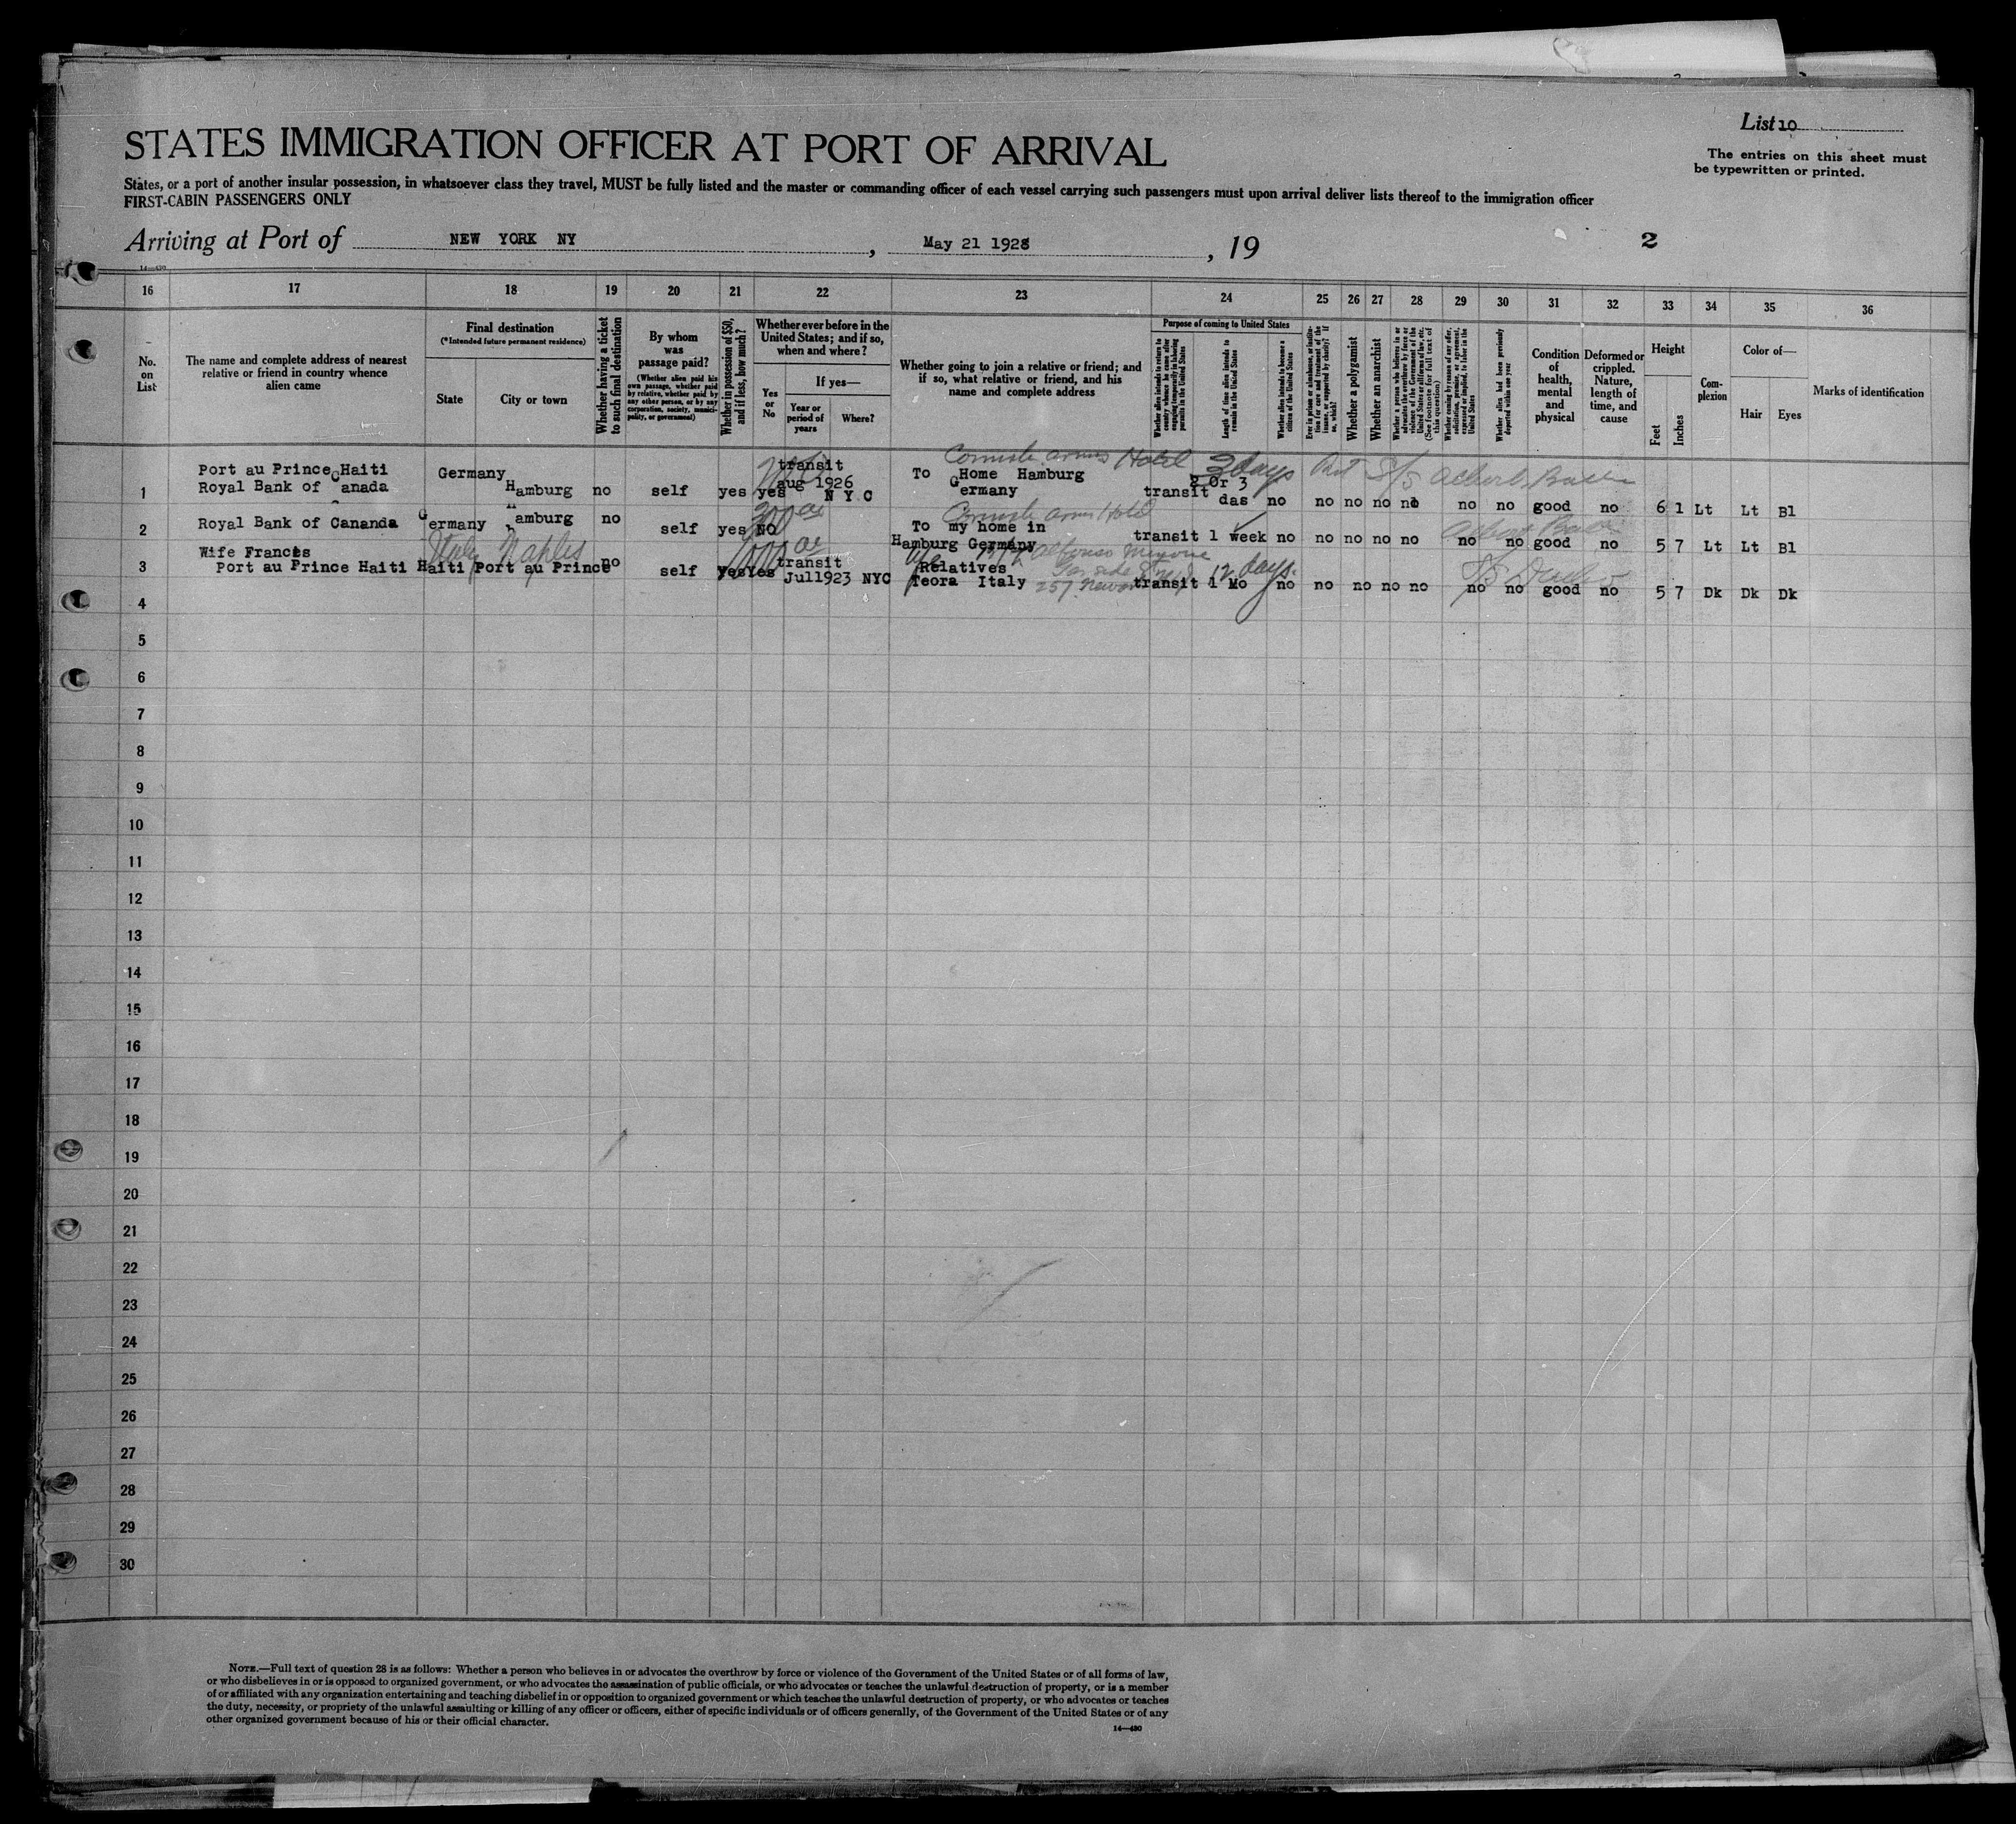 List 10
STATES IMMIGRATION OFFICER AT PORT OF ARRIVAL
The entries on this sheet must
be typewritten or printed.
States, or a port of another insular possession, in whatsoever class they travel, MUST be fully listed and the master or commanding officer of each vessel carrying such passengers must upon arrival deliver lists thereof to the immigration officer
FIRST-CABIN PASSENGERS ONLY
Arriving at Port of NEW YORK NY, May 21 1928, 19
2
14—430
16 17 18 19 20 21 22 23 24 25 26 27 28 29 30 31 32 33 34 35 36
No.
on
List
The name and complete address of nearest
relative or friend in country whence
alien came
Final destination
(*Intended future permanent residence)
State
City or town
Whether having a ticket
to such final destination
By whom
was
passage paid?
(Whether alien paid his
own passage, whether paid
by relative, whether paid by
any other person, or by any
corporation, society, munici-
pality, or government)
Whether in possession of $50,
and if less, how much?
Whether ever before in the
United States; and if so,
when and where?
Yes
or
No
If yes—
Year or
period of
years
Where?
Whether going to join a relative or friend; and
if so, what relative or friend, and his
name and complete address
Purpose of coming to United States
Whether alien intends to return to
country whence he came after
engaging temporarily in laboring
pursuits in the United States
Length of time alien intends to
remain in the United States
Whether alien intends to become a
citizen of the United States
Ever in prison or almshouse, or institu-
tion for care and treatment of the
insane, or supported by charity? If
so, which?
Whether a polygamist
Whether an anarchist
Whether a person who believes in or
advocates the overthrow by force or
violence of the Government of the
United States or all forms of law, etc.
(See footnote for full text of
this question)
Whether coming by reason of any offer,
solicitation, promise, or agreement,
expressed or implied, to labor in the
United States
Whether alien had been previously
deported within one year
Condition
of
health,
mental
and
physical
Deformed or
crippled.
Nature,
length of
time, and
cause
Height
Feet
Inches
Com-
plexion
Color of—
Hair
Eyes
Marks of identification
Hotel 3 days S/S Albert Ballin
Port au Prince Haiti Germany transit To Home Hamburg 2 Or 3
1 Royal Bank of Canada Hamburg no self yes yes aug 1926 N Y C Germany transit das no no no no no no no good no 6 1 Lt Lt Bl
300 00 Arms Hotel Albert Ballin
2 Royal Bank of Cananda Germany Hamburg no self yes NO To my home in
Hamburg Germany transit 1 week no no no no no no no good no 5 7 Lt Lt Bl
Italy Naples 1000 00 Alfonso 12 days. S/S
Wife Frances
3 Port au Prince Haiti Haiti Port au Prince no self yes Yes transit
Jul1923 NYC Relatives
Teora Italy 257 transit 1 Mo no no no no no no no good no 5 7 Dk Dk Dk
4
5
6
7
8
9
10
11
12
13
14
15
16
17
18
19
20
21
22
23
24
25
26
27
28
29
30
NOTE.—Full text of question 28 is as follows: Whether a person who believes in or advocates the overthrow by force or violence of the Government of the United States or of all forms of law,
or who disbelieves in or is opposed to organized government, or who advocates the assassination of public officials, or who advocates or teaches the unlawful destruction of property, or is a member
of or affiliated with any organization entertaining and teaching disbelief in or opposition to organized government or which teaches the unlawful destruction of property, or who advocates or teaches
the duty, necessity, or propriety of the unlawful assaulting or killing of any officer or officers, either of specific individuals or of officers generally, of the Government of the United States or of any
other organized government because of his or their official character.
14—430